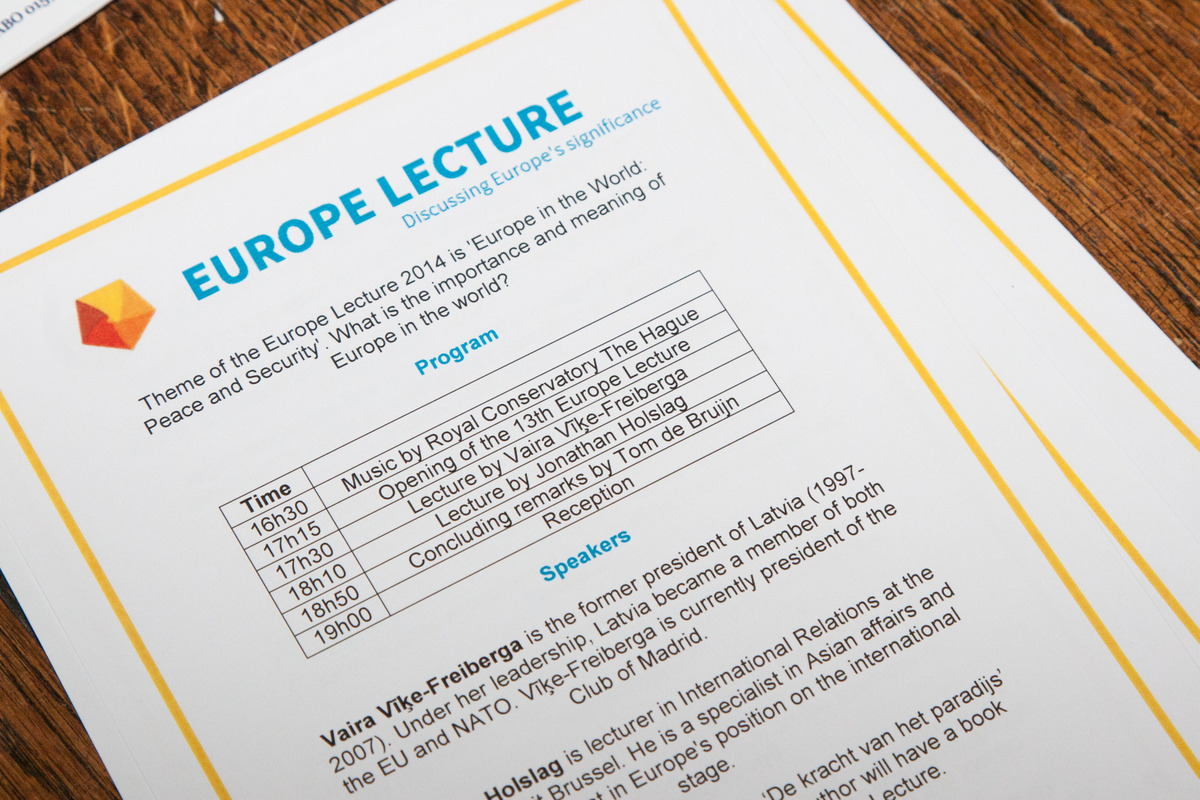 ABO
EUROPE LECTURE
Discussing Europe's significance
Theme of the Europe Lecture 2014 is 'Europe in the World:
Peace and Security'. What is the importance and meaning of
Europe in the world?
Program
Time
16h30 Music by Royal Conservatory The Hague
17h15 Opening of the 13th Europe Lecture
17h30 Lecture by Vaira Vīķe-Freiberga
18h10 Lecture by Jonathan Holslag
18h50 Concluding remarks by Tom de Bruijn
19h00 Reception
Speakers
Vaira Vīķe-Freiberga is the former president of Latvia (1997-
2007). Under her leadership, Latvia became a member of both
the EU and NATO. Vīķe-Freiberga is currently president of the
Club of Madrid.
Holslag is lecturer in International Relations at the
Brussel. He is a specialist in Asian affairs and
in Europe's position on the international
stage.
'De kracht van het paradijs'
will have a book
Lecture.